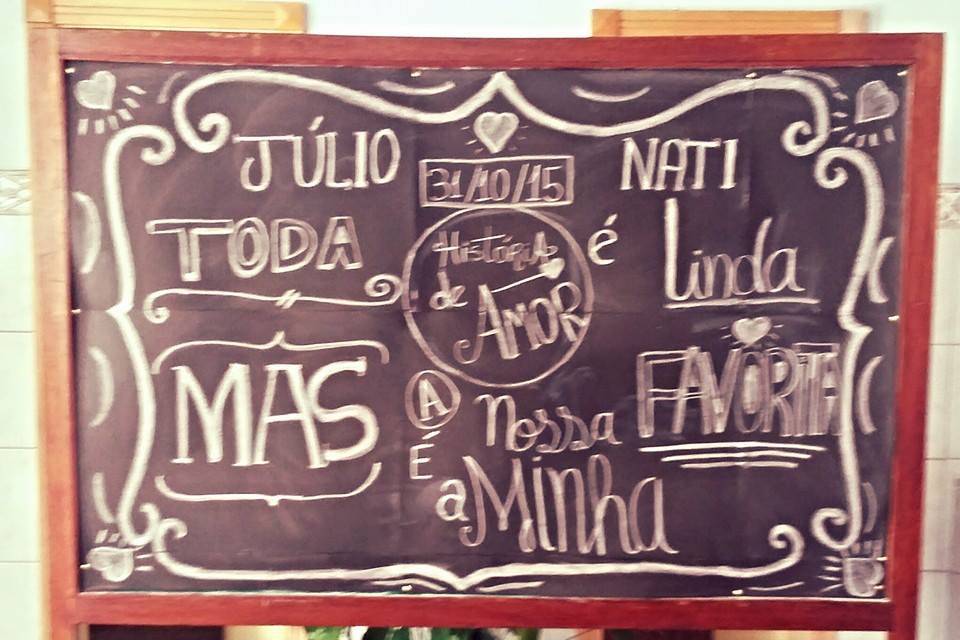 JÚLIO 31/10/15 NATI
TODA História de AMOR é linda
MAS A Nossa
É a Minha FAVORITA